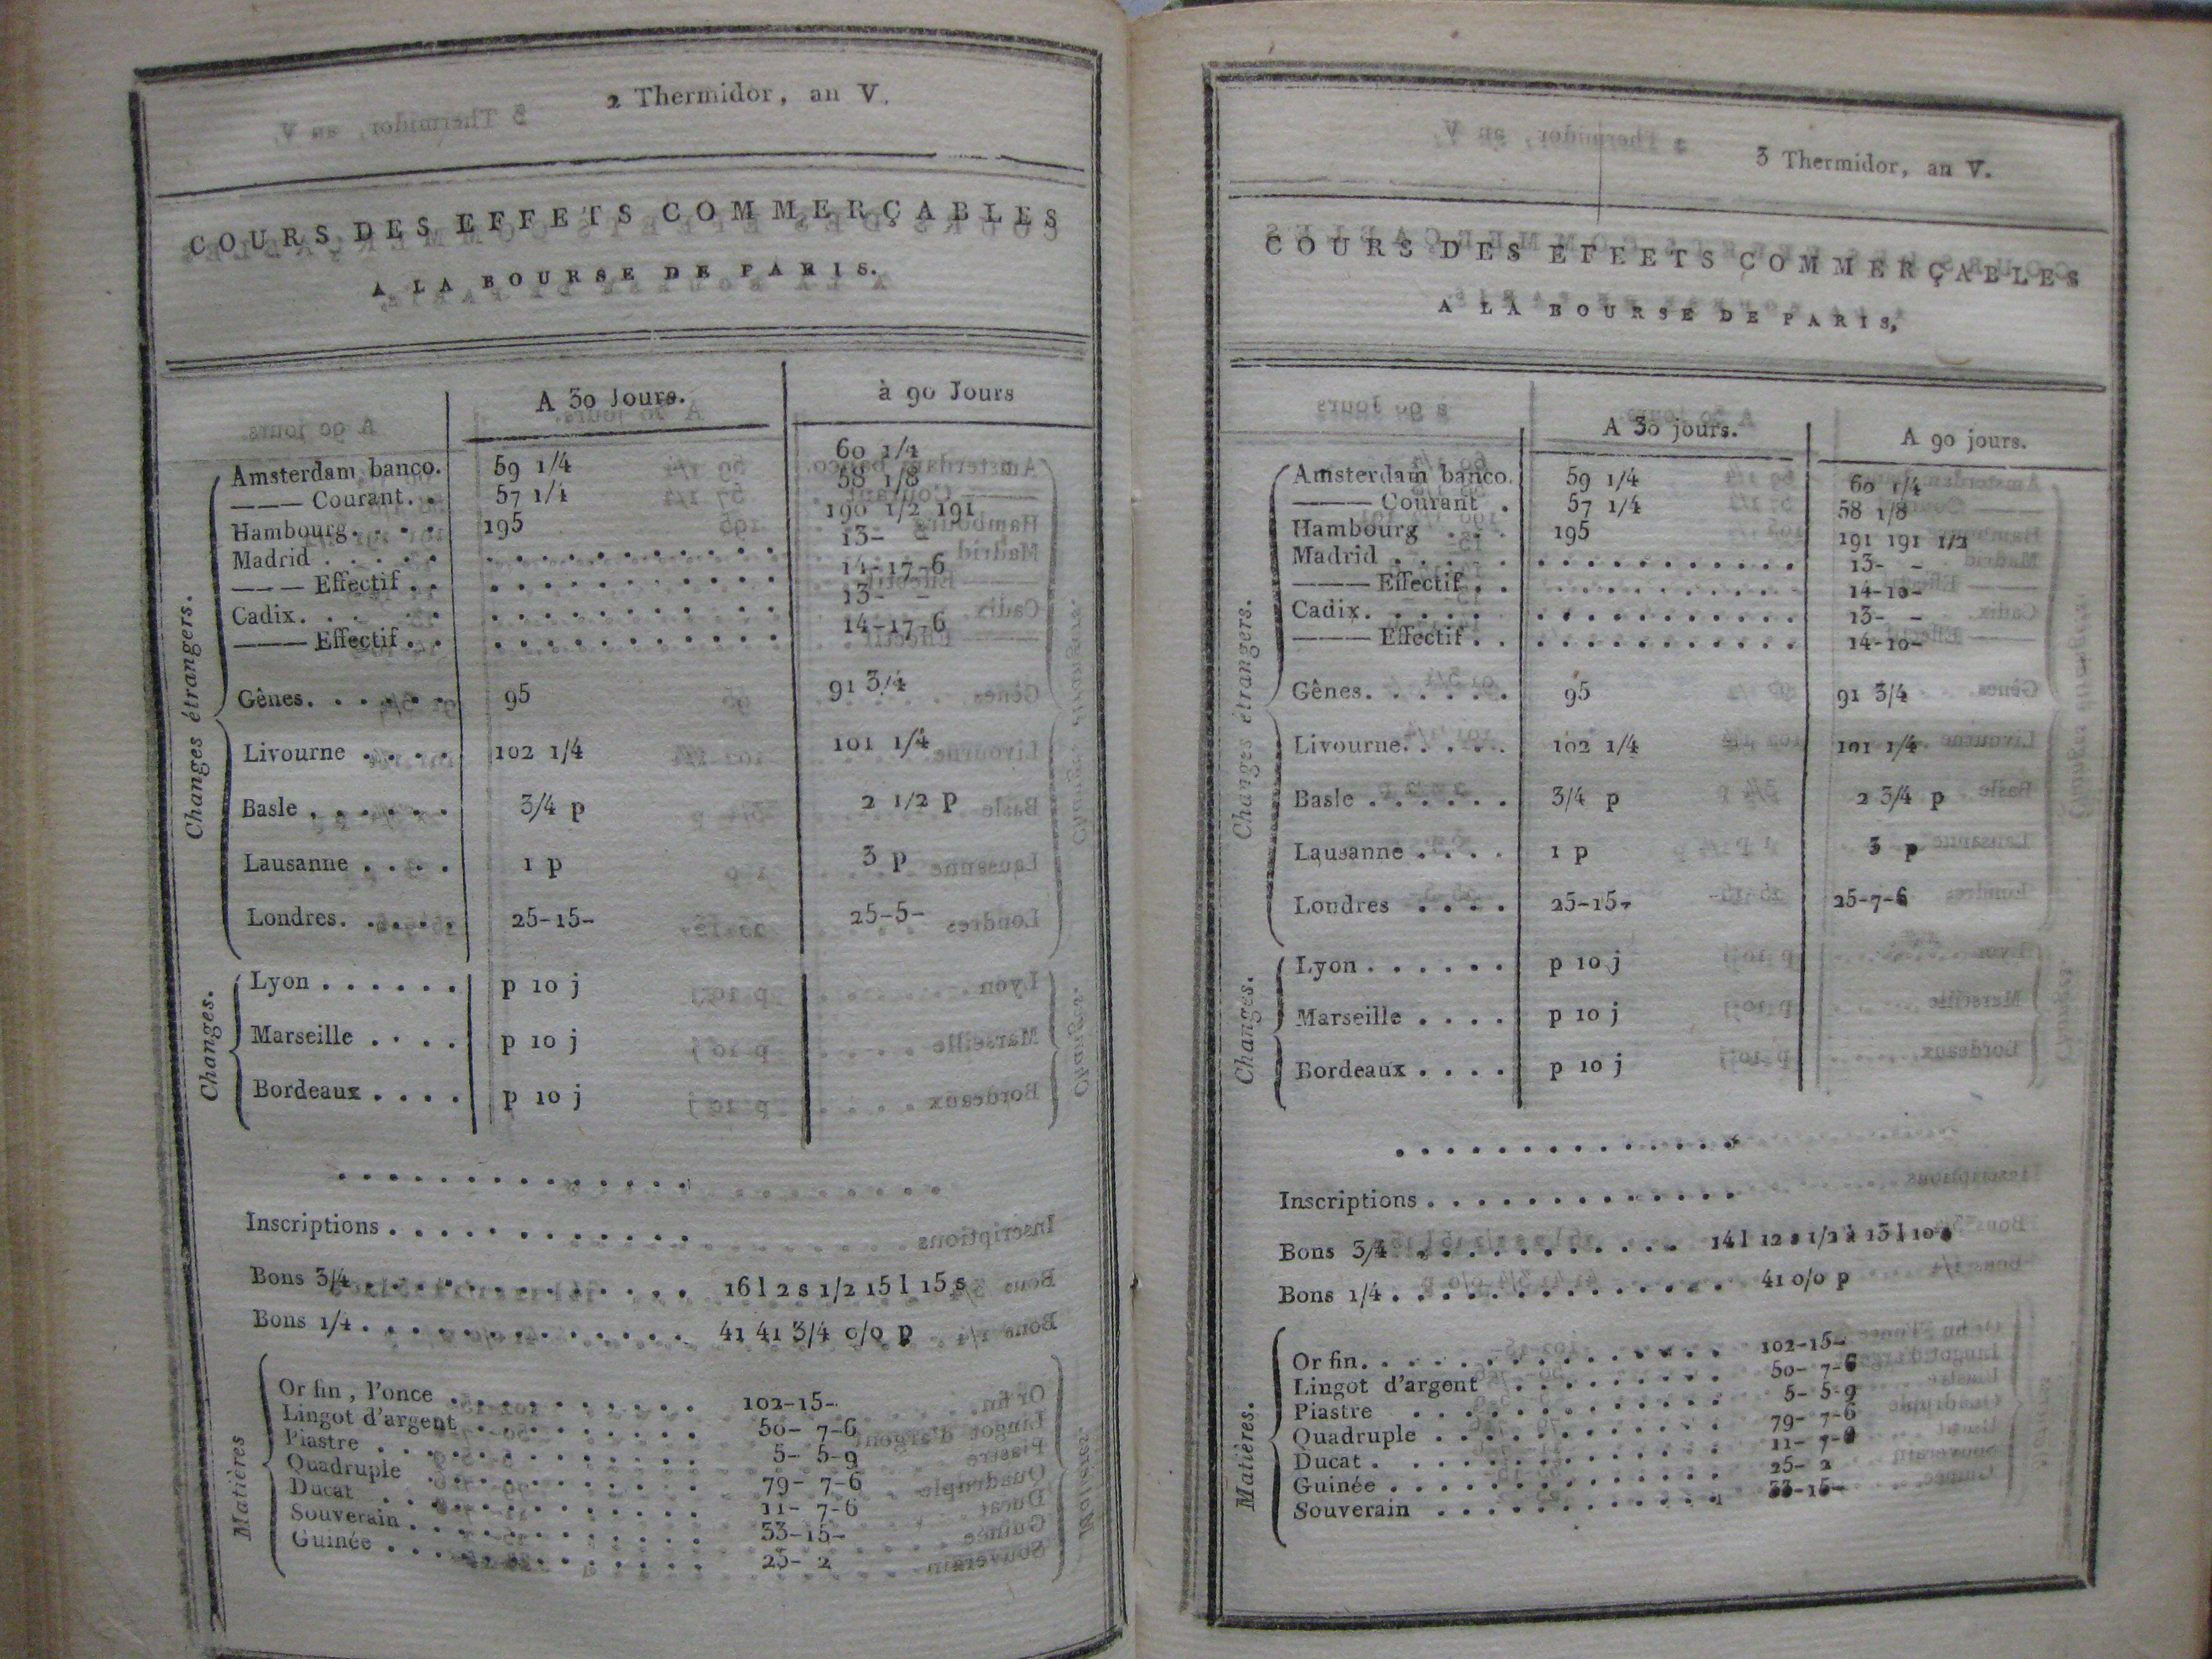 2 Thermidor, an V.
COURS DES EFFETS COMMERÇABLES
A LA BOURSE DE PARIS.
A 30 Jours. à 90 Jours
Changes étrangers.
Amsterdam banco. 59 1/4 60 1/4
——— Courant. . 57 1/4 58 1/8
Hambourg. . . . . 195 190 1/2 191
Madrid . . . . . . . . . . . . . . . . 13- -
——— Effectif . . . . . . . . . . . . . 14-17-6
Cadix. . . . . . . . . . . . . . . . . 13- -
——— Effectif . . . . . . . . . . . . . 14-17-6
Gênes. . . . . . . 95 91 3/4
Livourne . . . . 102 1/4 101 1/4
Basle . . . . . . 3/4 p 2 1/2 p
Lausanne . . . . 1 p 3 p
Londres. . . . . . 25-15- 25-5-
Changes.
Lyon . . . . . . p 10 j
Marseille . . . . p 10 j
Bordeaux . . . . p 10 j
. . . . . . . . . . . . . .
Inscriptions . . . . . . . . . . . .
Bons 3/4 . . . . . . . . . . . . 16 l 2 s 1/2 15 l 15 s
Bons 1/4 . . . . . . . . . . . . . 41 41 3/4 o/o p
Matières
Or fin, l'once . . . . . . . . . . 102-15-
Lingot d'argent . . . . . . . . . 50- 7-6
Piastre . . . . . . . . . . . . . 5- 5-9
Quadruple . . . . . . . . . . . 79- 7-6
Ducat . . . . . . . . . . . . . 11- 7-6
Souverain . . . . . . . . . . . . 33-15-
Guinée . . . . . . . . . . . . . 25- 2
3 Thermidor, an V.
COURS DES EFEETS COMMERÇABLES
A LA BOURSE DE PARIS,
A 30 jours. A 90 jours.
Changes étrangers.
Amsterdam banco. 59 1/4 60 1/4
——— Courant . 57 1/4 58 1/8
Hambourg . . . 195 191 191 1/2
Madrid . . . . . . . . . . . . . . . . 13- -
——— Effectif . . . . . . . . . . . . . 14-10-
Cadix. . . . . . . . . . . . . . . . . 13- -
——— Effectif . . . . . . . . . . . . . 14-10-
Gênes. . . . . . . 95 91 3/4
Livourne. . . . . 102 1/4 101 1/4
Basle . . . . . . 3/4 p 2 3/4 p
Lausanne . . . . 1 p 3 p
Londres . . . . 25-15- 25-7-6
Changes.
Lyon . . . . . . p 10 j
Marseille . . . . p 10 j
Bordeaux . . . . p 10 j
. . . . . . . . . . . . . .
Inscriptions . . . . . . . . . . . . .
Bons 3/4 . . . . . . . . . . . 14 l 12 s 1/2 à 13 l 10 s
Bons 1/4 . . . . . . . . . . . . . . 41 o/o p
Matières.
Or fin. . . . . . . . . . . . . . . 102-15-
Lingot d'argent . . . . . . . . . 50- 7-6
Piastre . . . . . . . . . . . . . 5- 5-9
Quadruple . . . . . . . . . . . . 79- 7-6
Ducat . . . . . . . . . . . . . . 11- 7-6
Guinée . . . . . . . . . . . . . 25- 2
Souverain . . . . . . . . . . . . 33-15-